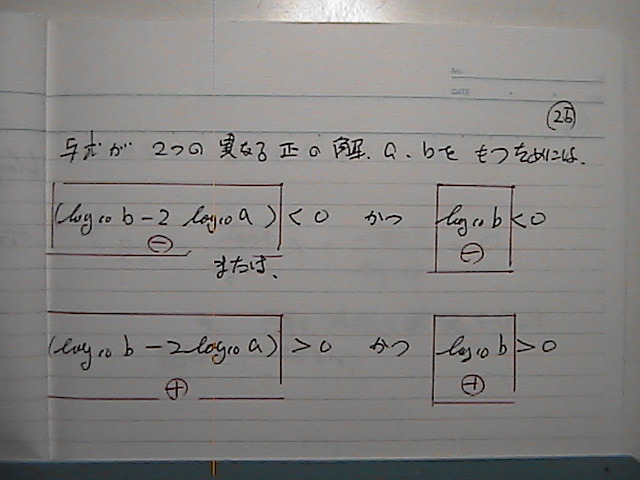 No.
DATE
25
与式が 2つの異なる正の解、a、bをもつためには、
(log₁₀ b - 2 log₁₀ a) < 0 かつ log₁₀ b < 0
⊖ ⊖
または、
(log₁₀ b - 2 log₁₀ a) > 0 かつ log₁₀ b > 0
⊕ ⊕